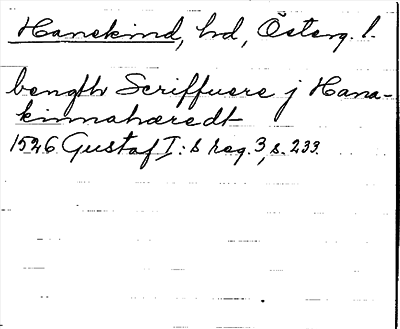 Hanekind, hd, Österg. l.
bength Scriffuere j Hana-
kinnahæredt
1526 Gustaf I:s reg. 3, s. 233.